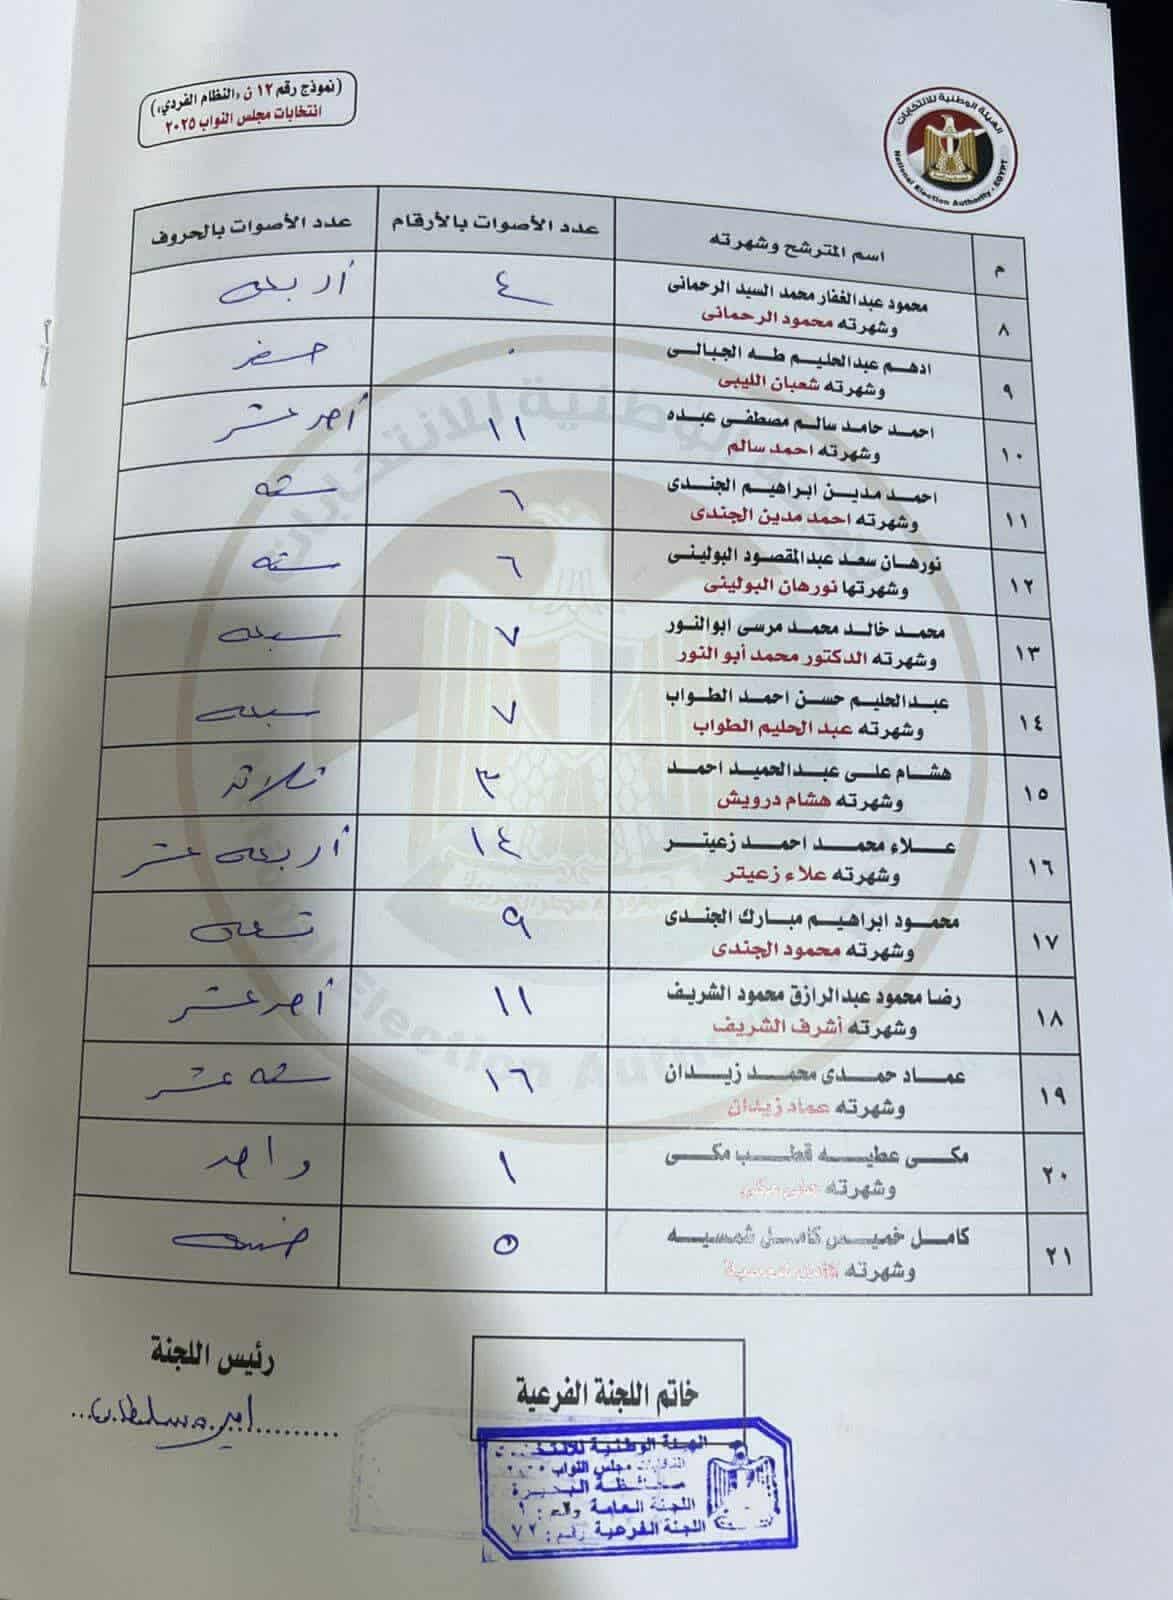 (نموذج رقم ١٢ ن «النظام الفردي»)
انتخابات مجلس النواب ٢٠٢٥
الهيئة الوطنية للانتخابات
National Election Authority - EGYPT
م اسم المترشح وشهرته عدد الأصوات بالأرقام عدد الأصوات بالحروف
٨ محمود عبدالغفار محمد السيد الرحمانى ٤ أربعه
وشهرته محمود الرحمانى
٩ ادهم عبدالحليم طه الجبالى ٠ صفر
وشهرته شعبان الليبى
١٠ احمد حامد سالم مصطفى عبده ١١ أحد عشر
وشهرته احمد سالم
١١ احمد مدين ابراهيم الجندى ٦ سته
وشهرته احمد مدين الجندى
١٢ نورهان سعد عبدالمقصود البولينى ٦ سته
وشهرتها نورهان البولينى
١٣ محمد خالد محمد مرسى ابوالنور ٧ سبعه
وشهرته الدكتور محمد أبو النور
١٤ عبدالحليم حسن احمد الطواب ٧ سبعه
وشهرته عبد الحليم الطواب
١٥ هشام على عبدالحميد احمد ٣ ثلاثة
وشهرته هشام درويش
١٦ علاء محمد احمد زعيتر ١٤ أربعه عشر
وشهرته علاء زعيتر
١٧ محمود ابراهيم مبارك الجندى ٩ تسعه
وشهرته محمود الجندى
١٨ رضا محمود عبدالرازق محمود الشريف ١١ أحد عشر
وشهرته أشرف الشريف
١٩ عماد حمدى محمد زيدان ١٦ سته عشر
وشهرته عماد زيدان
٢٠ مكى عطيه قطب مكى ١ واحد
وشهرته
٢١ كامل خميس كامل شمسيه ٥ خمسه
وشهرته
رئيس اللجنة
خاتم اللجنة الفرعية
الهيئة الوطنية للانتخابات
مجلس النواب
محافظة البحيرة
اللجنة العامة رقم : ١
اللجنة الفرعية رقم : ٧٢